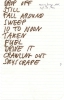 DROP OFF
HILL
FALL AROUND
SWEEP
10 TO NOON
TAKEN
FUEL
DRIVE IT
CRAWLED OUT
SKYSCRAPE